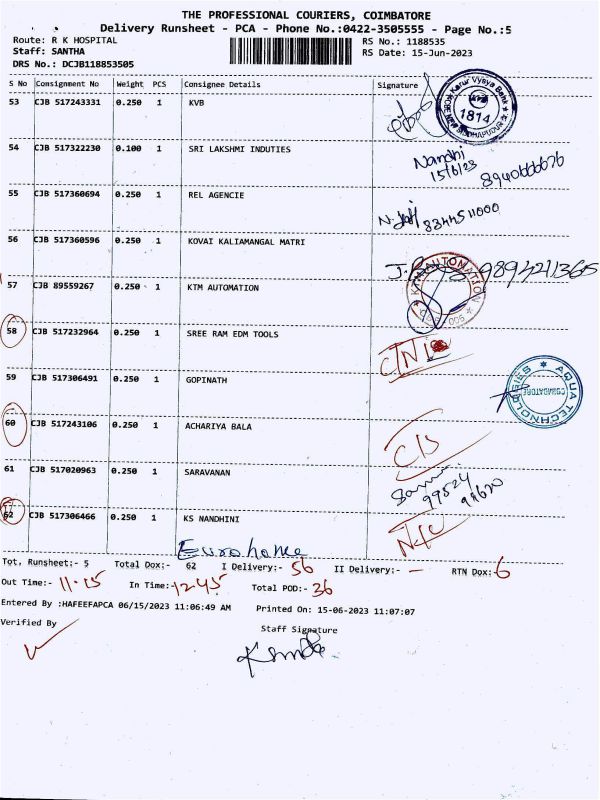 THE PROFESSIONAL COURIERS, COIMBATORE
Delivery Runsheet - PCA - Phone No.:0422-3505555 - Page No.:5
Route: R K HOSPITAL
Staff: SANTHA
DRS No.: DCJB118853505
RS No.: 1188535
RS Date: 15-Jun-2023
S No Consignment No Weight PCS Consignee Details Signature
53 CJB 517243331 0.250 1 KVB
Karur Vysya Bank 1814
54 CJB 517322230 0.100 1 SRI LAKSHMI INDUTIES
Nandhi
15/6/23 8940666676
55 CJB 517360694 0.250 1 REL AGENCIE
8344511000
56 CJB 517360596 0.250 1 KOVAI KALIAMANGAL MATRI
9894211365
57 CJB 89559267 0.250 1 KTM AUTOMATION
KTM AUTOMATION
58 CJB 517232964 0.250 1 SREE RAM EDM TOOLS
59 CJB 517306491 0.250 1 GOPINATH
AQUA TECHNOLOGIES COIMBATORE
60 CJB 517243106 0.250 1 ACHARIYA BALA
61 CJB 517020963 0.250 1 SARAVANAN
99524
62 CJB 517306466 0.250 1 KS NANDHINI
Tot. Runsheet:- 5 Total Dox:- 62 I Delivery:- 56 II Delivery:- — RTN Dox:- 6
Out Time:- 11-15 In Time:- 12-45 Total POD:- 36
Entered By :HAFEEFAPCA 06/15/2023 11:06:49 AM Printed On: 15-06-2023 11:07:07
Verified By Staff Signature